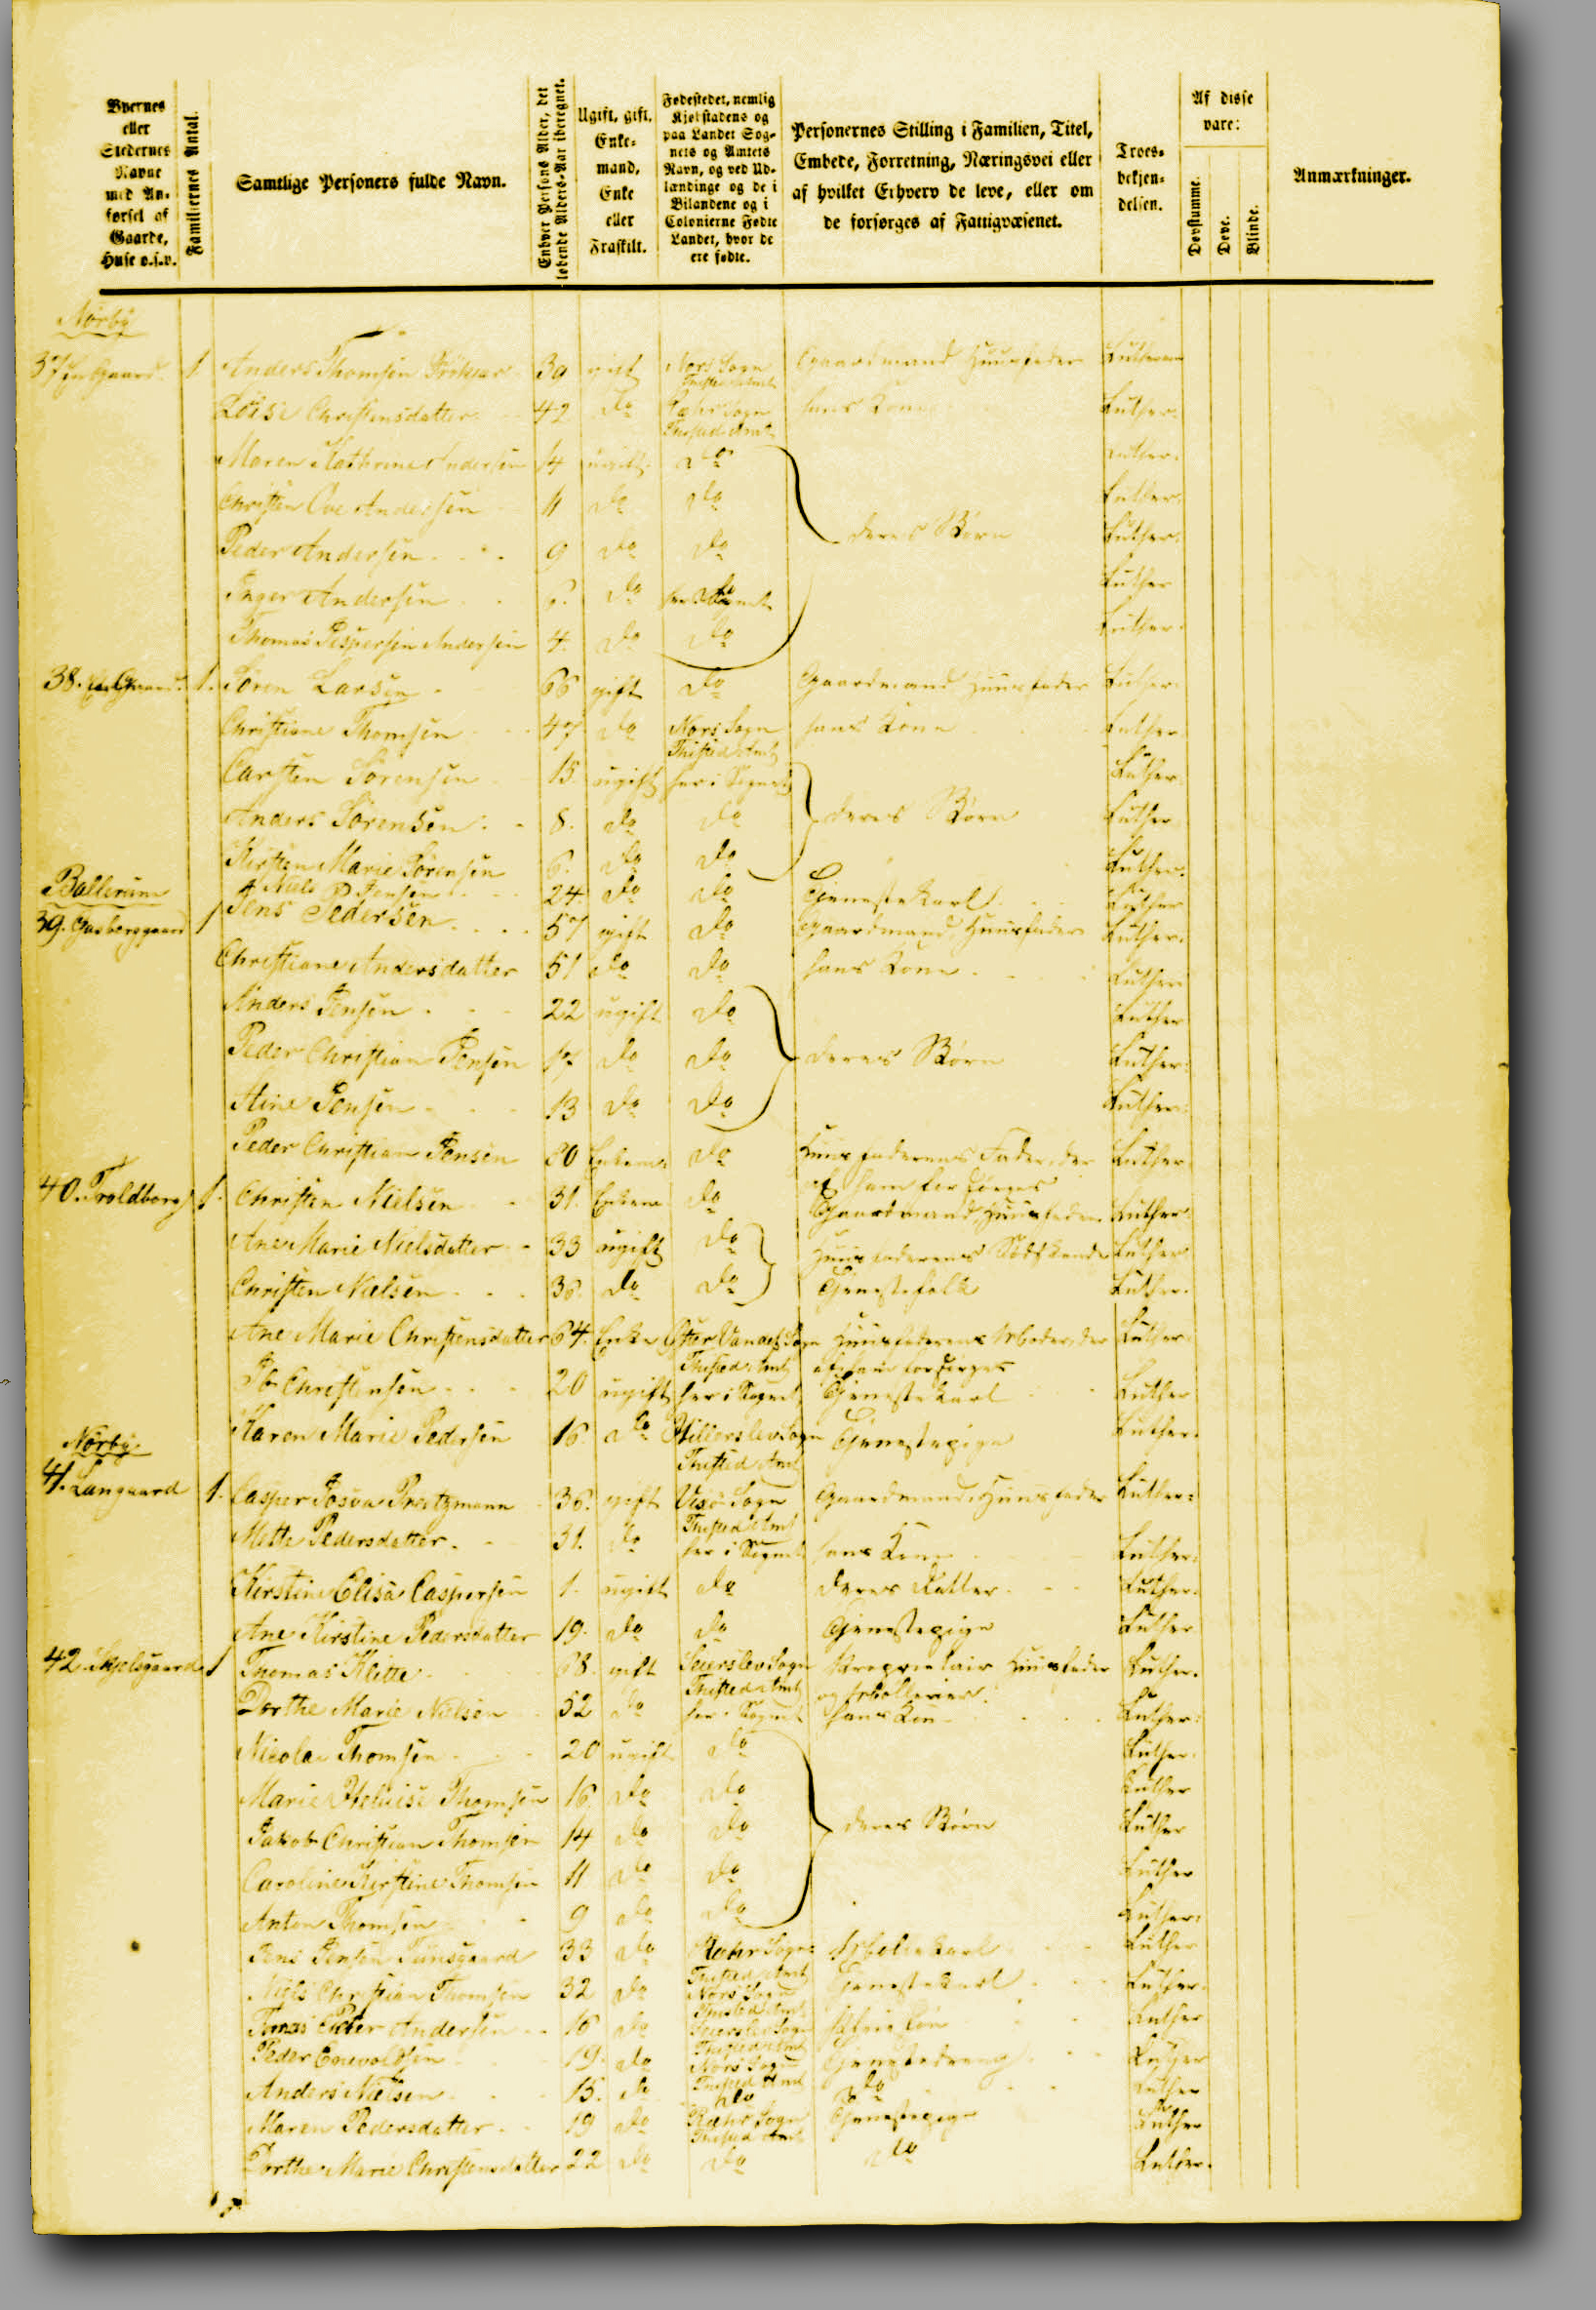 Byernes eller Stedernes Navne med Anførsel af Gaarde, Huse o.s.v.
Familiernes Antal.
Samtlige Personers fulde Navn.
Enhver Persons Alder, det løbende Alders-Aar iberegnet.
Ugift, gift, Enkemand, Enke eller Fraskilt.
Fødestedet, nemlig Kjøbstadens og paa Landet Sognets og Amtets Navn, og ved Udlændinge og de i Bilandene og i Colonierne Fødte Landet, hvor de ere fødte.
Personernes Stilling i Familien, Titel, Embede, Forretning, Næringsvei eller af hvilket Erhverv de leve, eller om de forsørges af Fattigvæsenet.
Troesbekjendelsen.
Af disse vare:
Døvstumme.
Døve.
Blinde.
Anmærkninger.
Nørby
37 1 Anders Thomsen 39 gift Nors Sogn Thisted Amt Gaardmand Huusfader Lutheran
Christensdatter 42 do Ræhr Sogn Thisted Amt hans Kone Luther.
Maren Kathrine Andersen 14 ugift do Luther.
Christen Ove Andersen 11 do do deres Børn Luther.
Peder Andersen 9 do do Luther.
Inger Andersen 6. do Luther
Thomas Jespersen Andersen 4. do do Luther.
38. 1. Søren Larsen 66 gift do Gaardmand Huusfader Luther.
Christiane Thomsen 47 do Nors Sogn Thisted Amt hans Kone Luther.
Carsten Sørensen 15 ugift her i Sognet Luther.
Anders Sørensen 8. do do deres Børn Luther
Kirsten Marie Sørensen 6. do do Luther.
Ballerum
Niels P Jensen 24. do do Tjenestekarl Luther
39. 1 Jens Pedersen 57 gift do Gaardmand Huusfader Luther.
Christiane Andersdatter 51 do do hans Kone Luther
Anders Jensen 22 ugift do Luther
Peder Christian Jensen 17 do do deres Børn Luther.
Stine Jensen 13 do do Luther.
Peder Christian Jensen 80 Enkem. do Huusfaderens Fader, der af ham forsørges Luther.
40. Troldborg 1. Christen Nielsen 31. Enkem do Gaardmand, Huusfader Luther.
Ane Marie Nielsdatter 33 ugift do Huusfaderens Sødskende Luther
Christen Nielsen 36. do do Tjenestefolk Luther.
Ane Marie Christensdatter 64. Enke Øster Vandet Sogn Thisted Amt Huusfaderens Moder, der af ham forsørges Luther
Ib Christensen 20 ugift her i Sognet Tjenestekarl Luther
Karen Marie Pedersen 16. do Hillerslev Sogn Thisted Amt Tjenestepige Luther.
Nørby.
41. Langaard 1. Casper Josva Preetzmann 36. gift Visø Sogn Thisted Amt Gaardmand, Huusfader Luther.
Mette Pedersdatter. 31. do her i Sognet hans Kone Luther.
Kirstine Elisa Caspersen 1. ugift do deres Datter Luther.
Ane Kirstine Pedersdatter 19. do do Tjenestepige Luther
42. 1 Thomas Klitte 68. gift Seierslev Sogn Thisted Amt Proprietair Huusfader og Luther.
Dorthe Marie Nielsen 52 do her i Sognet hans Kone Luther.
Nicolai Thomsen 20 ugift do Luther.
Marie Heluise Thomsen 16. do do Luther
Jakob Christian Thomsen 14 do do deres Børn Luther
Caroline Kirstine Thomsen 11 do do Luther
Anton Thomsen 9 do do Luther.
Jens Jensen 33 do Ræhr Sogn Thisted Amt Luther
Niels Christian Thomsen 32 do Nors Sogn Thisted Amt Tjenestekarl Luther.
Peter Andersen 16 do Seierslev Sogn Thisted Amt Luther
Peder Enevoldsen 19. do Nors Sogn Thisted Amt Tjenestedreng Luther
Anders Nielsen 15. do do do Luther
Maren Pedersdatter 19 do Ræhr Sogn Thisted Amt Tjenestepige Luther
Dorthe Marie Christensdatter 22 do do do Luther.